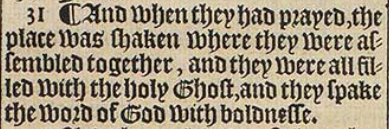 31 ¶ And when they had prayed, the
place was shaken where they were as-
sembled together, and they were all fil-
led with the holy Ghost, and they spake
the word of God with boldnesse.